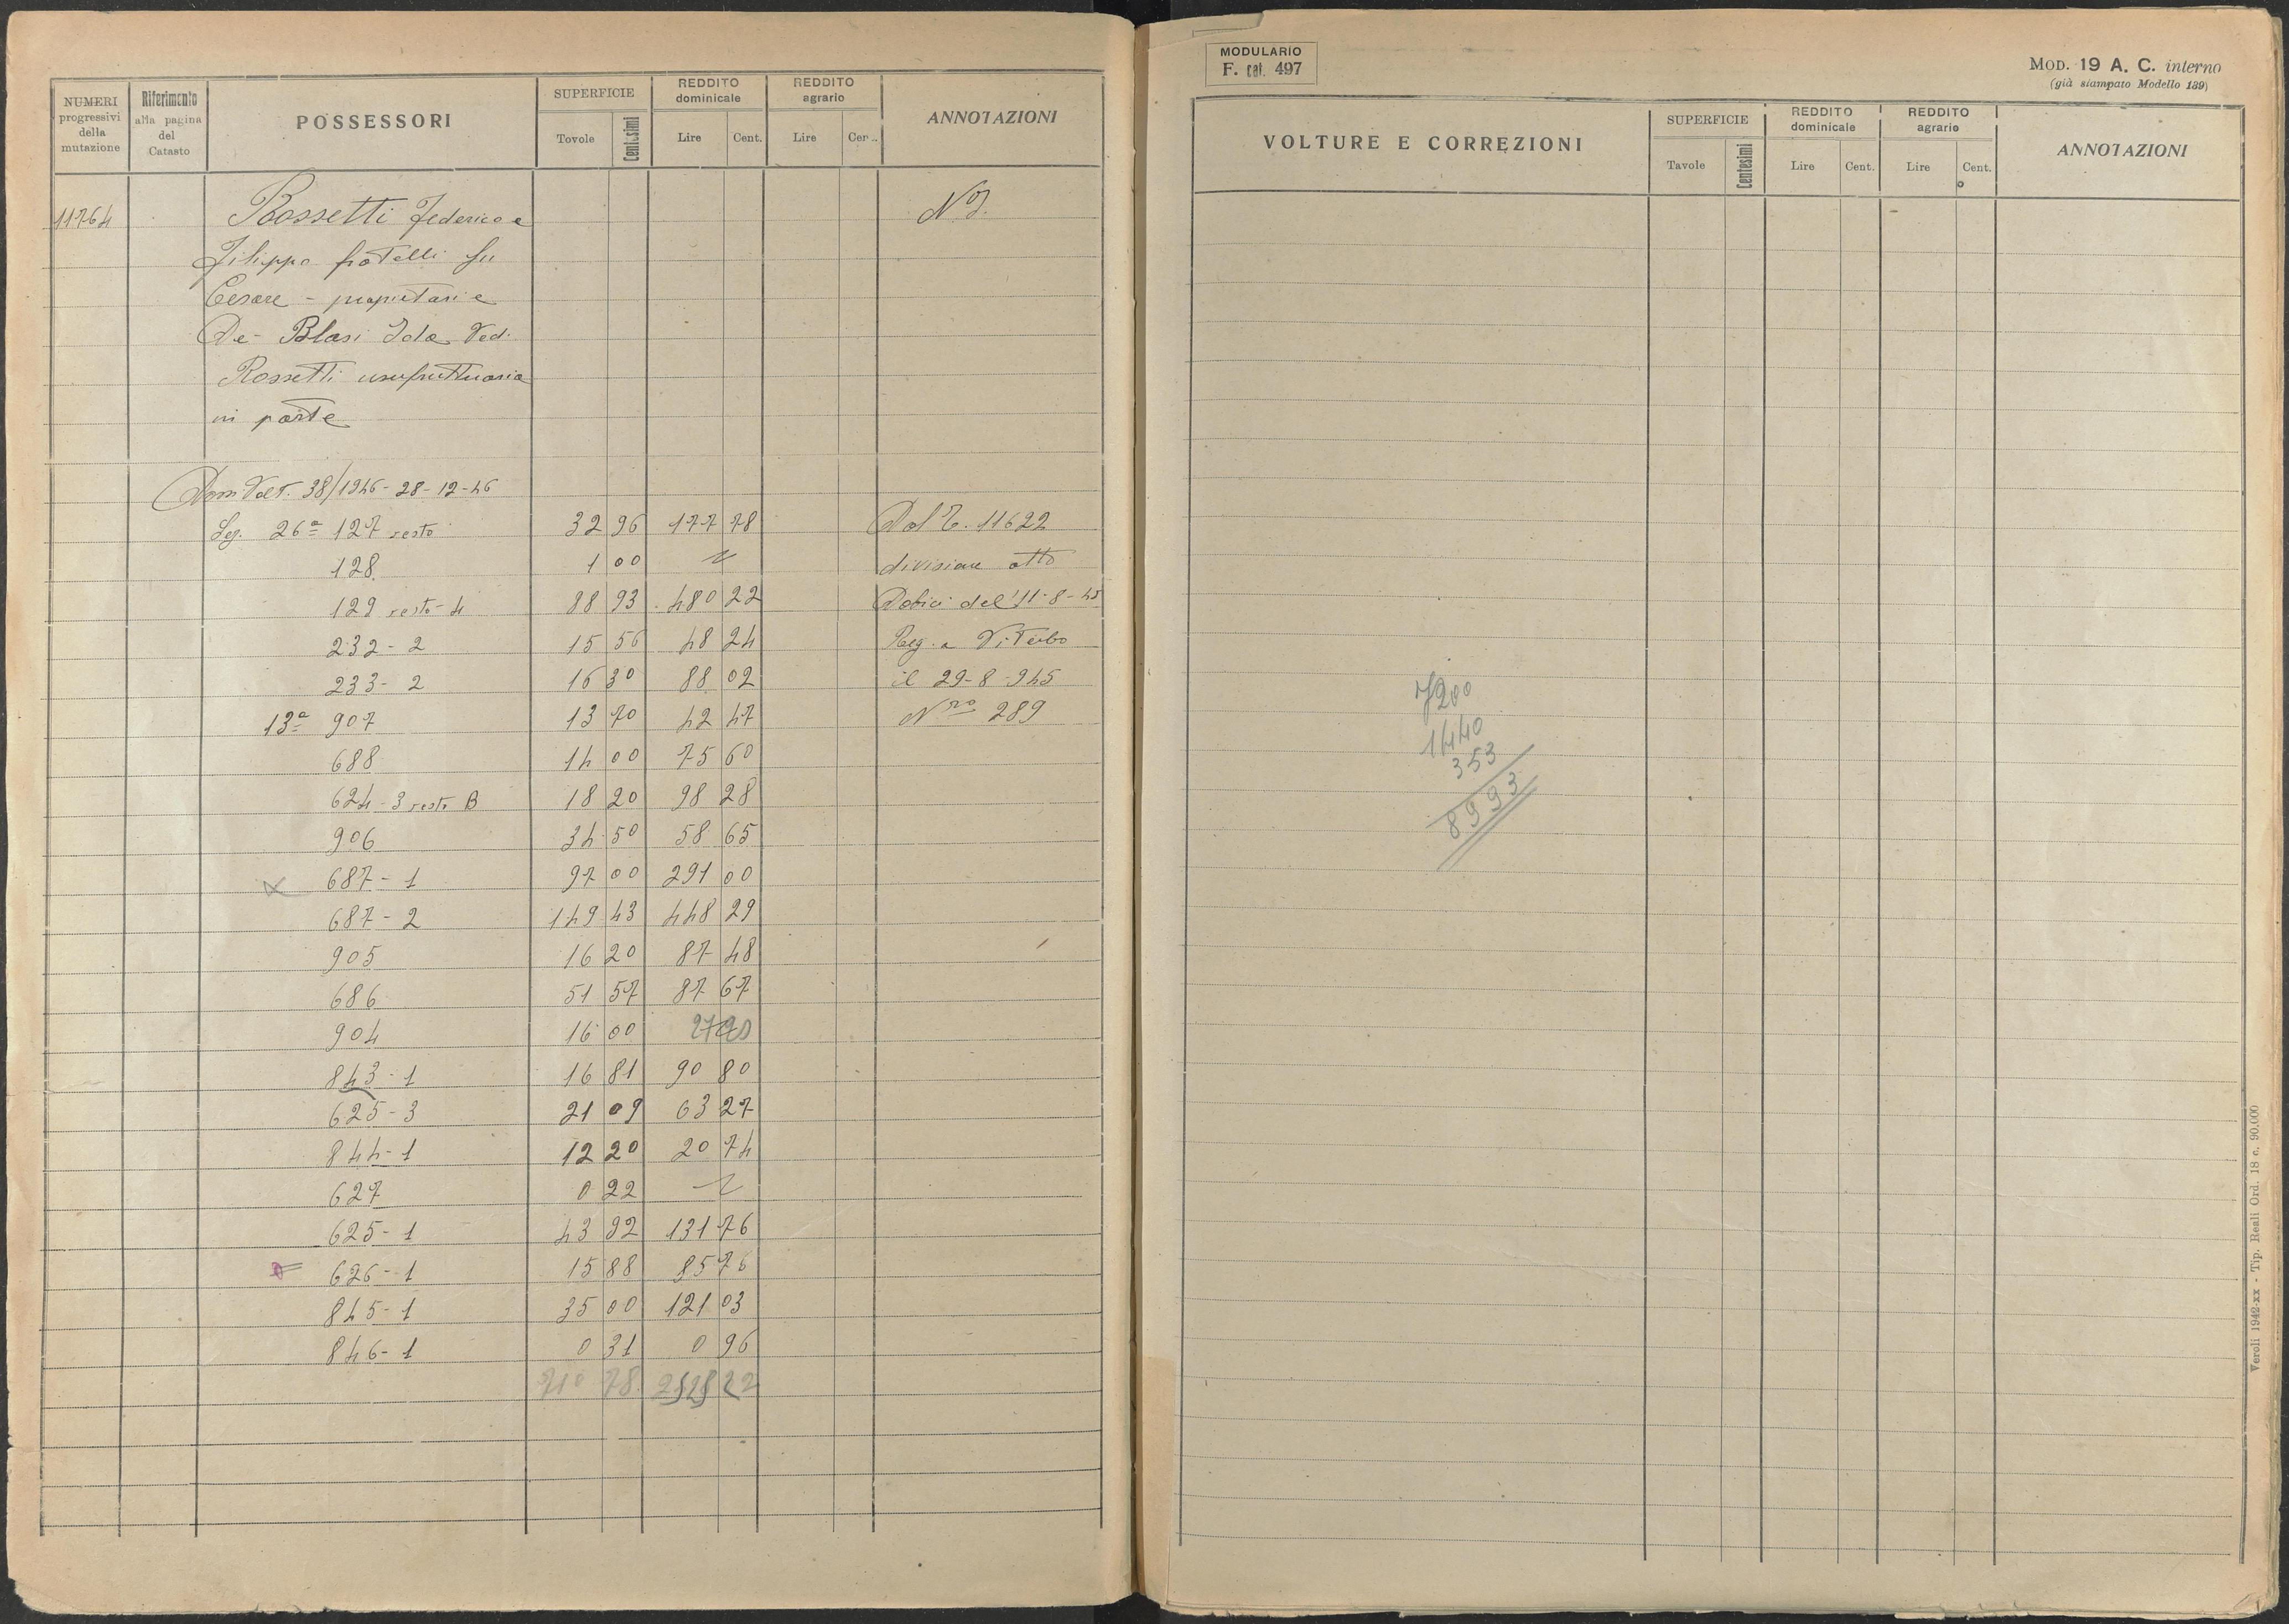 NUMERI progressivi della mutazione | Riferimento alla pagina del Catasto | POSSESSORI | SUPERFICIE Tavole Centesimi | REDDITO dominicale Lire Cent. | REDDITO agrario Lire Cer .. | ANNOTAZIONI
11764 Rossetti Federico e
Filippo fratelli fu
Cesare - proprietari e
De - Blasi Ida Ved.
Rossetti usufruttuaria
in parte
Dom Volt. 38/1946 - 28-12-46
Sez. 26ª 127 resto 32 96 177 78 Dal T. 11622
128 1 00 divisione atto
129 resto - 4 88 93 480 22 dell'11-8-45
232 - 2 15 56 48 24 Reg. a Viterbo
233 - 2 16 30 88 02 il 29-8-945
13ª 907 13 70 42 47 Nro 289
688 14 00 75 60
624 - 3 resto B 18 20 98 28
906 34 50 58 65
687 - 1 97 00 291 00
687 - 2 149 43 448 29
905 16 20 87 48
686 51 57 87 67
904 16 00 27 20
843 - 1 16 81 90 80
625 - 3 21 09 63 27
844 - 1 12 20 20 74
627 0 22
625 - 1 43 92 131 76
626 - 1 15 88 85 76
845 - 1 35 00 121 03
846 - 1 0 31 0 96
710 78
MODULARIO
F. cat. 497
MOD. 19 A. C. interno
(già stampato Modello 139)
VOLTURE E CORREZIONI | SUPERFICIE Tavole Centesimi | REDDITO dominicale Lire Cent. | REDDITO agrario Lire Cent. | ANNOTAZIONI
7200
1440
353
8993
Veroli 1942-xx - Tip. Reali Ord. 18 c. 90.000